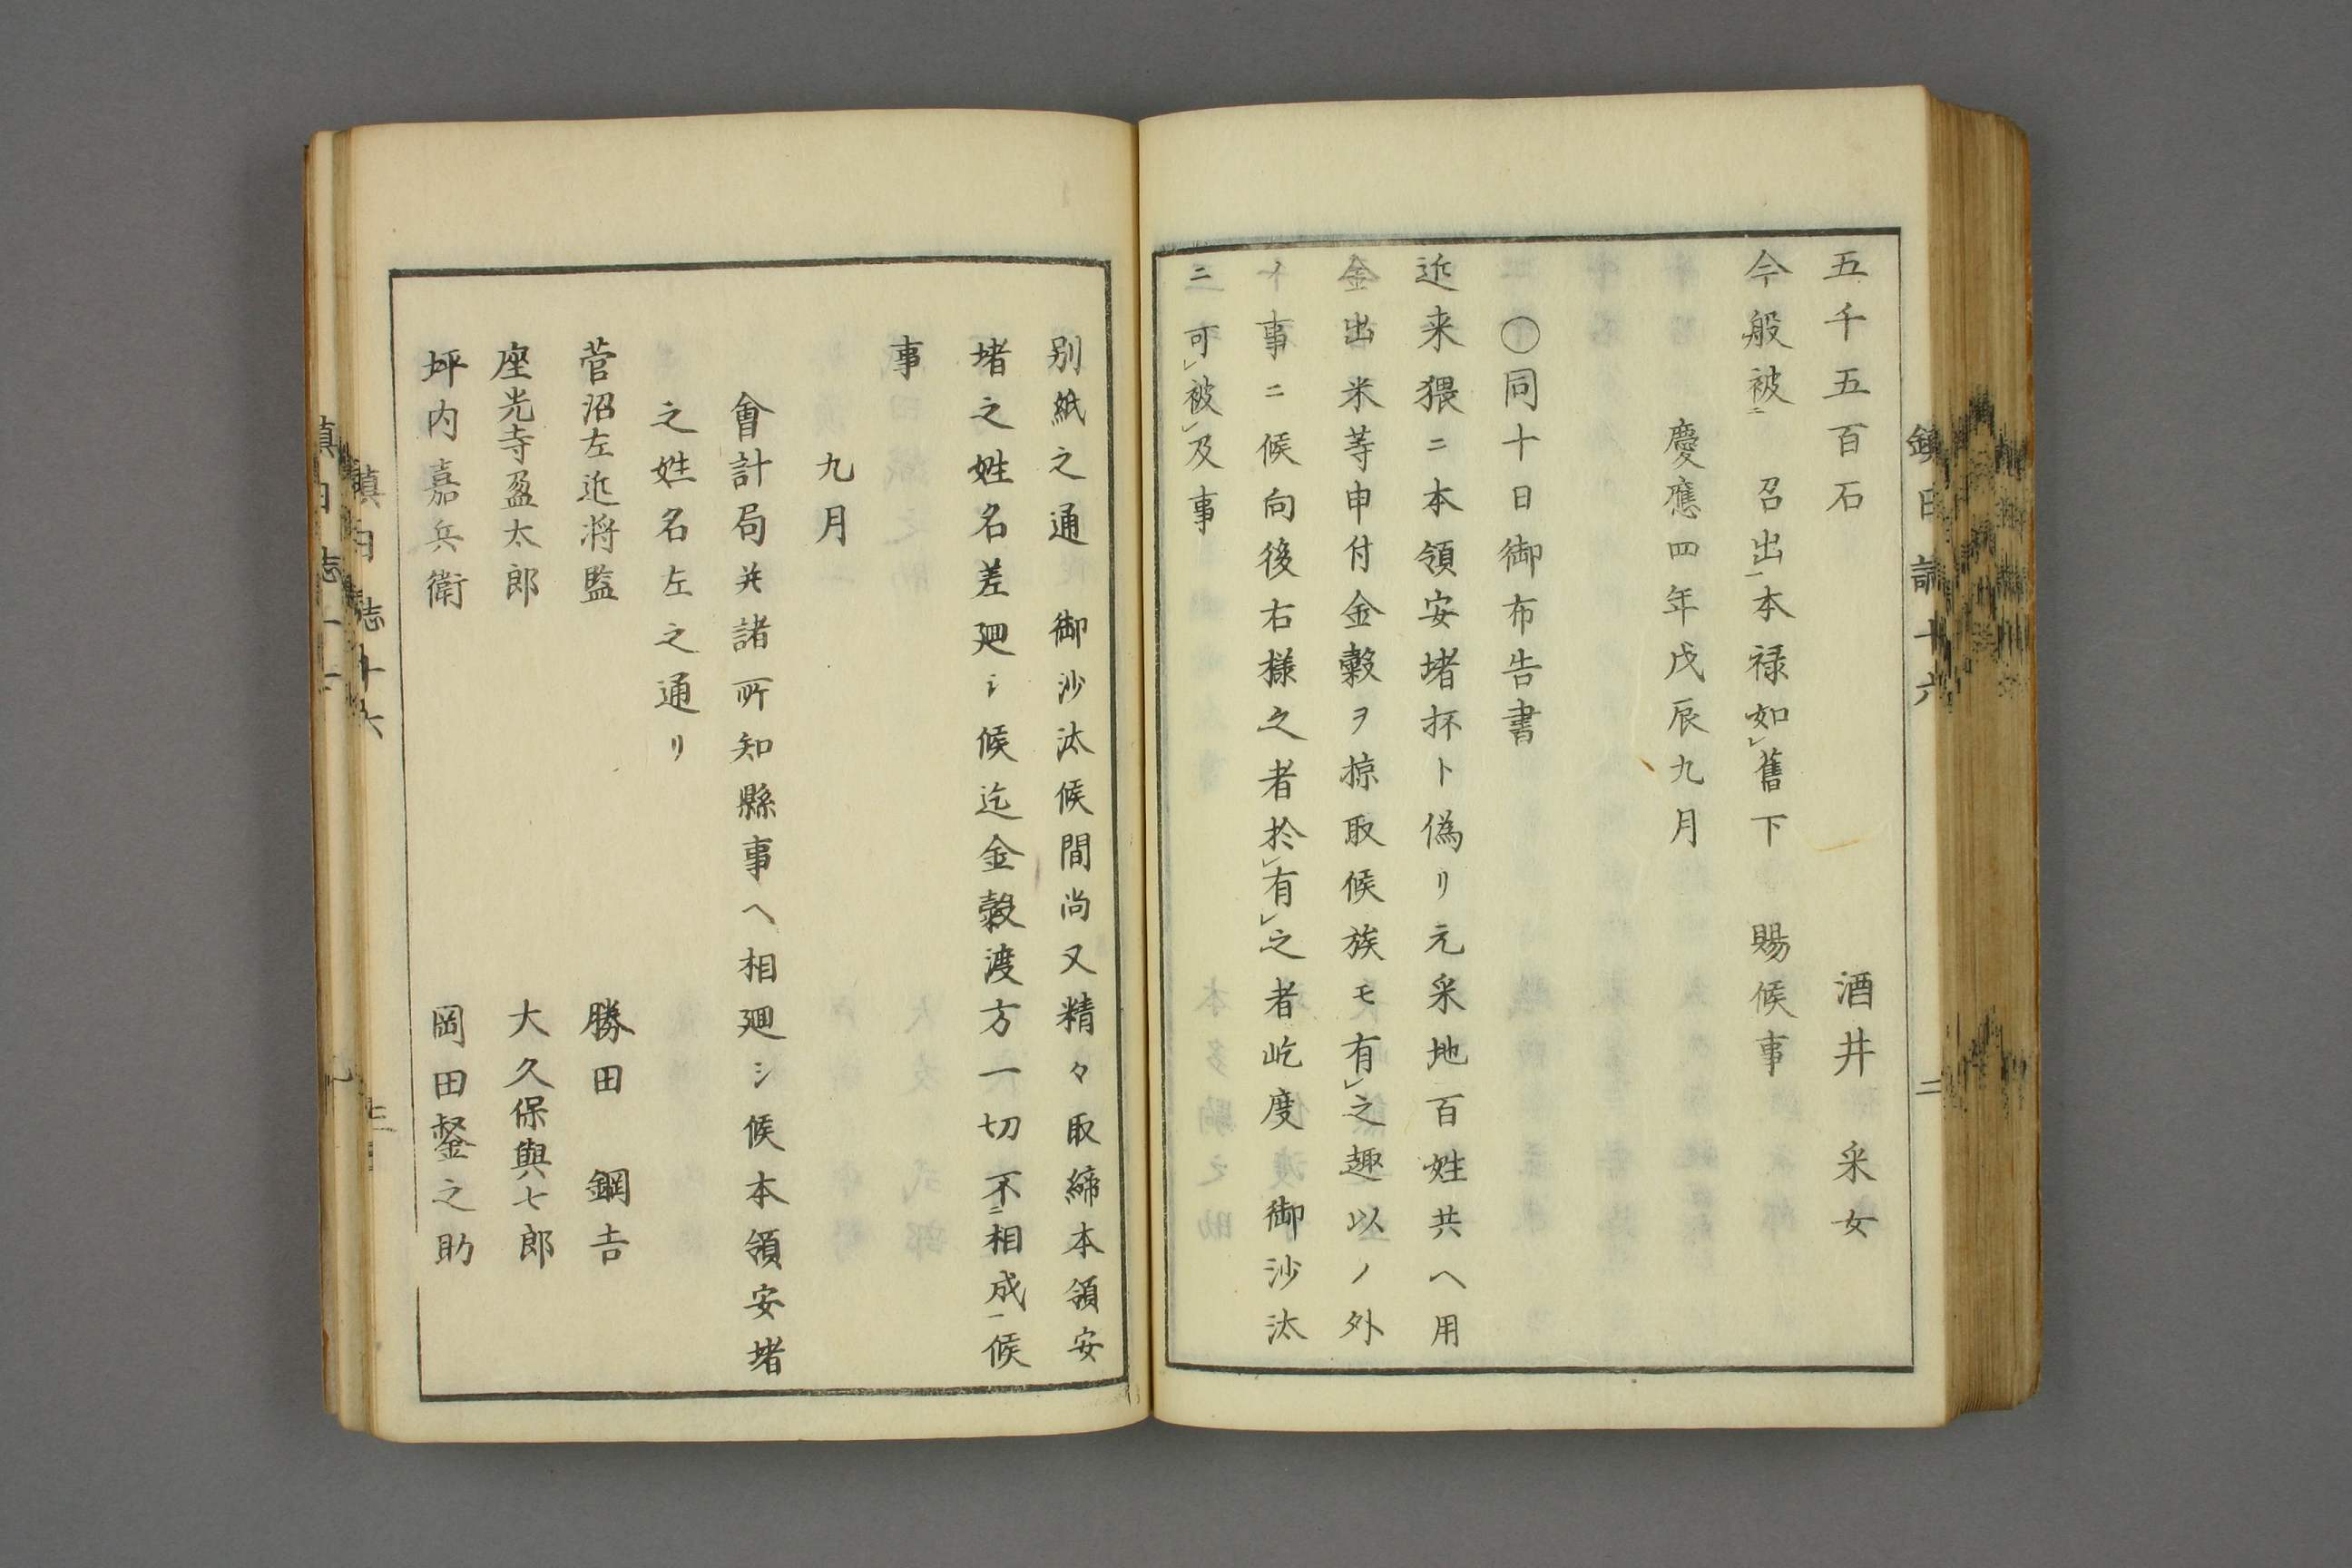 五千五百石　酒井采女
今般被㆓　召出㆒本禄如㆑舊下　賜候事
慶應四年戊辰九月
○同十日御布告書
近来猥ニ本領安堵抔ト偽リ元采地百姓共ヘ用
金出米等申付金穀ヲ掠取候族モ有㆑之趣以ノ外
ノ事ニ候向後右樣之者於㆑有㆑之者屹度　御沙汰
ニ可㆑被㆑及事
別紙之通　御沙汰候間尚又精々取締本領安
堵之姓名差廻シ候迄金穀渡方一切不㆓相成㆒候
事
九月
會計局并諸所知縣事ヘ相廻シ候本領安堵
之姓名左之通リ
菅沼左近将監　勝田鋼吉
座光寺盈太郎　大久保與七郎
坪内嘉兵衛　岡田鍫之助
鎮日誌十六　二